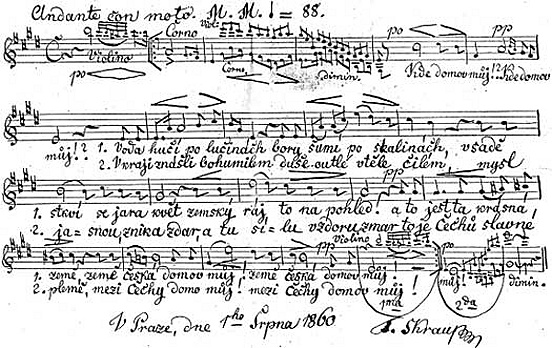 Andante con moto. M. M. ♩ = 88.
Viol. Corno po pp
Violino Corno dimin. Kde domov můj!? Kde domov
po
můj!? 1. Voda hučí po lučinách bory šumí po skalinách, v sadě
2. V kraji znáš-li bohumilém duše outlé v těle čilém, mysl
pp
1. stkví se jara květ zemský ráj to na pohled! a to jest ta krásná,
2. ja=snou, znik a zdar, a tu sí=lu vzdoru zmar to je Čechů slavné
pp Violino po
1. země, země česká domov můj! země česká domov můj! můj! dimin.
2. plémě, mezi Čechy domov můj! mezi Čechy domov můj!
1ma 2da
V Praze, dne 1ho Srpna 1860 F. Skraup